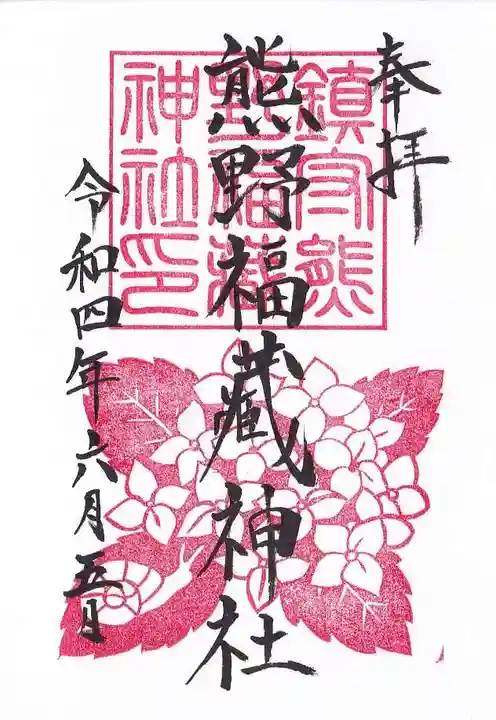 奉拝
熊野福藏神社
令和四年六月五日
鎮守熊
野福藏
神社印